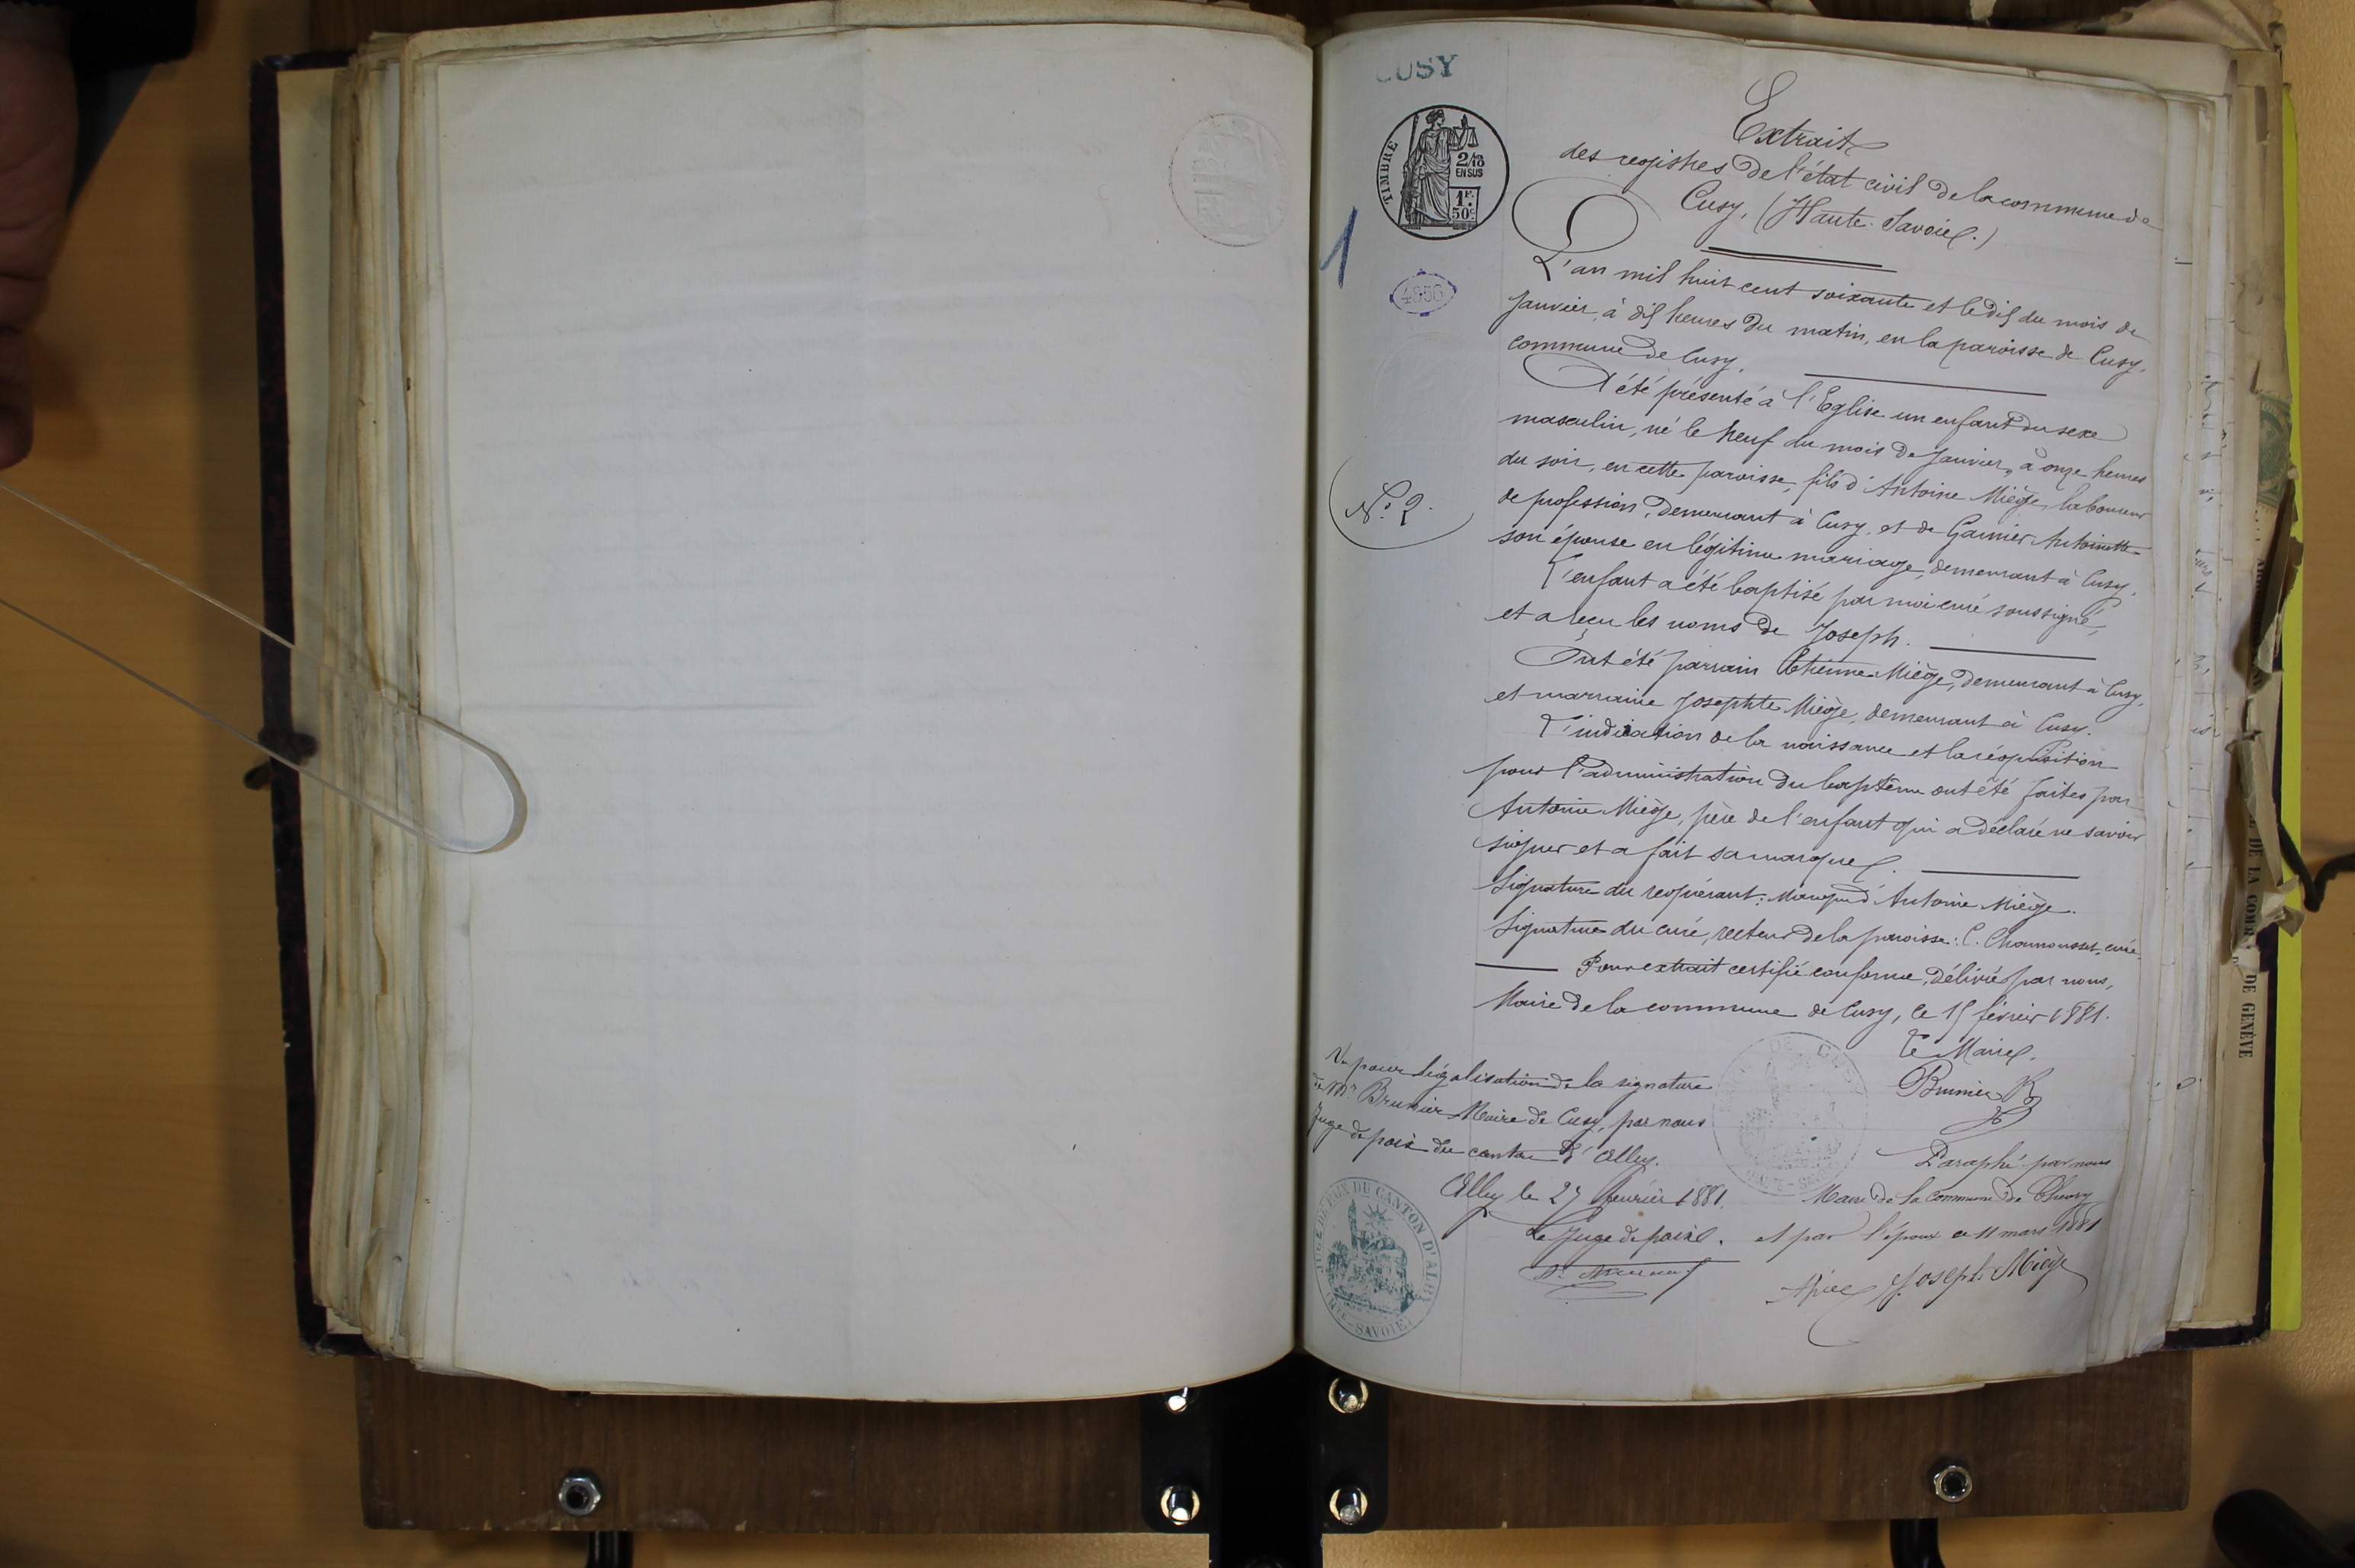 CUSY
TIMBRE
2/10
EN SUS
1F.
50c
1
4856
Extrait
des registres de l'état civil de la commune de
Cusy, (Haute-Savoie.)
L'an mil huit cent soixante et le dix du mois de
Janvier, à dix heures du matin, en la paroisse de Cusy,
commune de Cusy.
A été présenté à l'Eglise un enfant du sexe
masculin, né le neuf du mois de Janvier, à onze heures
du soir, en cette paroisse, fils d'Antoine Miège, laboureur
N.º 2.
de profession, demeurant à Cusy, et de Garnier Antoinette
son épouse en légitime mariage, demeurant à Cusy.
L'enfant a été baptisé par moi curé soussigné,
et a reçu les noms de Joseph.
Ont été parrain Etienne Miège, demeurant à Cusy,
et marraine Josephte Miège, demeurant à Cusy.
L'indication de la naissance et la réquisition
pour l'administration du baptême ont été faites par
Antoine Miège, père de l'enfant qui a déclaré ne savoir
signer et a fait sa marque.
Signature du requérant: Marque d'Antoine Miège.
Signature du curé, recteur de la paroisse: C. Chamousset, curé.
Pour extrait certifié conforme, délivré par nous,
Maire de la commune de Cusy, le 15 février 1881.
Le Maire.
Brunier
Vu pour légalisation de la signature
de Mr Brunier Maire de Cusy, par nous
Juge de paix du canton d'Alby.
Alby le 27 février 1881.
Le Juge de paix.
JUGE DE PAIX DU CANTON D'ALBY
(HTE-SAVOIE)
Paraphé par nous
Maire de la Commune de
et par l'époux ce 11 mars 1881
Joseph Miège
DE GENÈVE